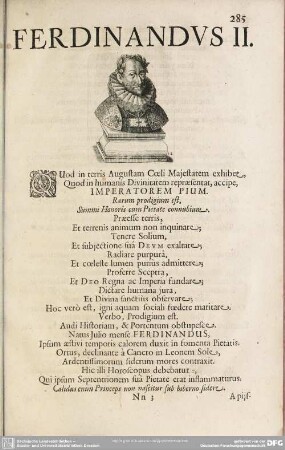 285
FERDINANDVS II.
QUod in terris Augustam Cœli Majestatem exhibet,
Quod in humanis Divinitatem repræsentat, accipe,
IMPERATOREM PIUM.
Rarum prodigium est,
Summi Honoris cum Pietate connubium.
Præesse terris,
Et terrenis animum non inquinare;
Tenere Solium,
Et subjectione suâ DEUM exaltare;
Radiare purpurâ,
Et cœleste lumen purius admittere;
Proferre Sceptra,
Et DEO Regna ac Imperia fundare;
Dictare humana jura,
Et Divina sanctius observare;
Hoc verò est, igni aquam sociali fœdere maritare,
Verbo, Prodigium est.
Audi Historiam, & Portentum obstupesce.
Natus Julio mense FERDINANDUS,
Ipsum æstivi temporis calorem duxit in fomenta Pietatis.
Ortus, declinante à Cancro in Leonem Sole,
Ardentissimorum siderum mores contraxit.
Hic illi Horoscopus debebatur:
Qui ipsum Septentrionem suâ Pietate erat inflammaturus.
Calidus enim Princeps non nascitur sub hiberno sidere.
Nn 3
Apis-